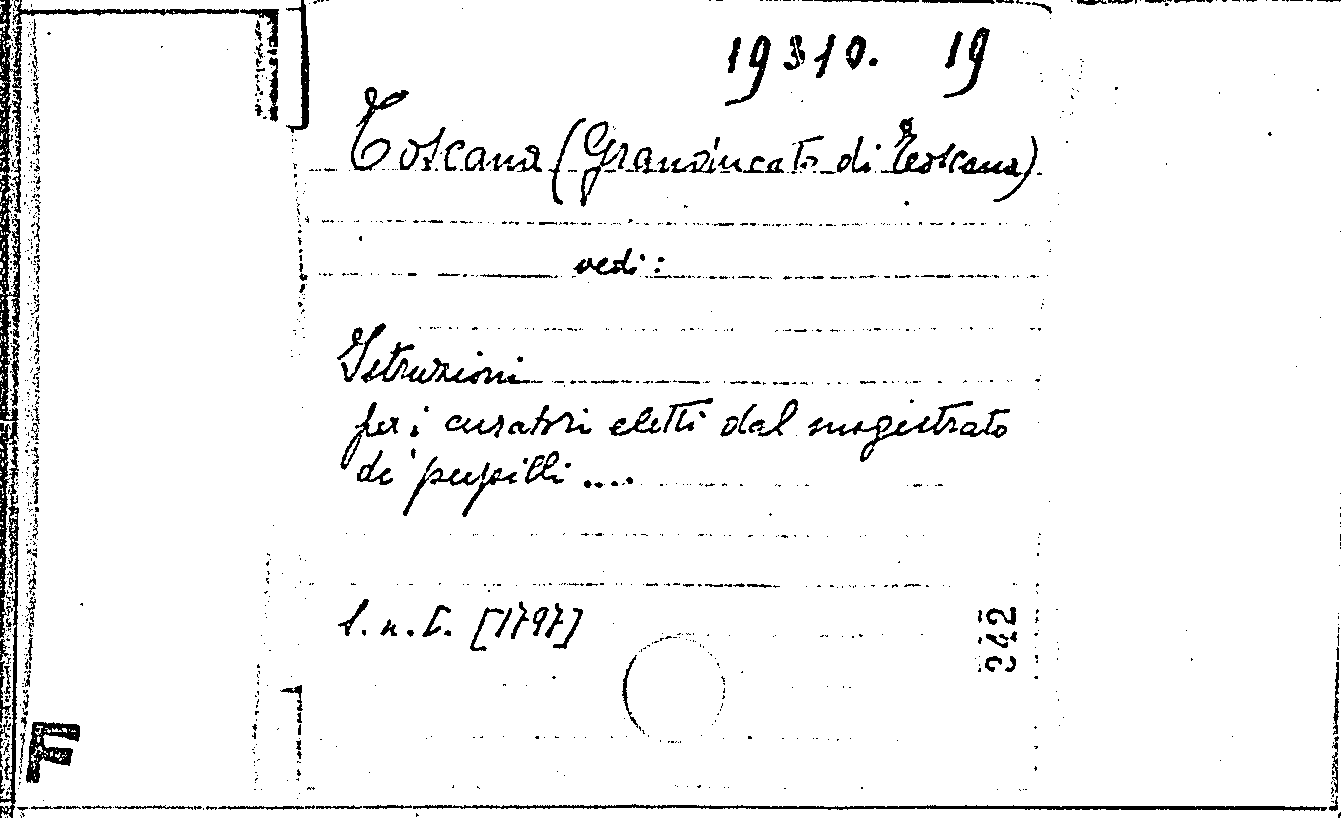 19310. 19
Toscana (Granducato di Toscana)
vedi:
Istruzioni
per i curatori eletti dal magistrato
de' pupilli ....
s.n.t. [1797]
242
F